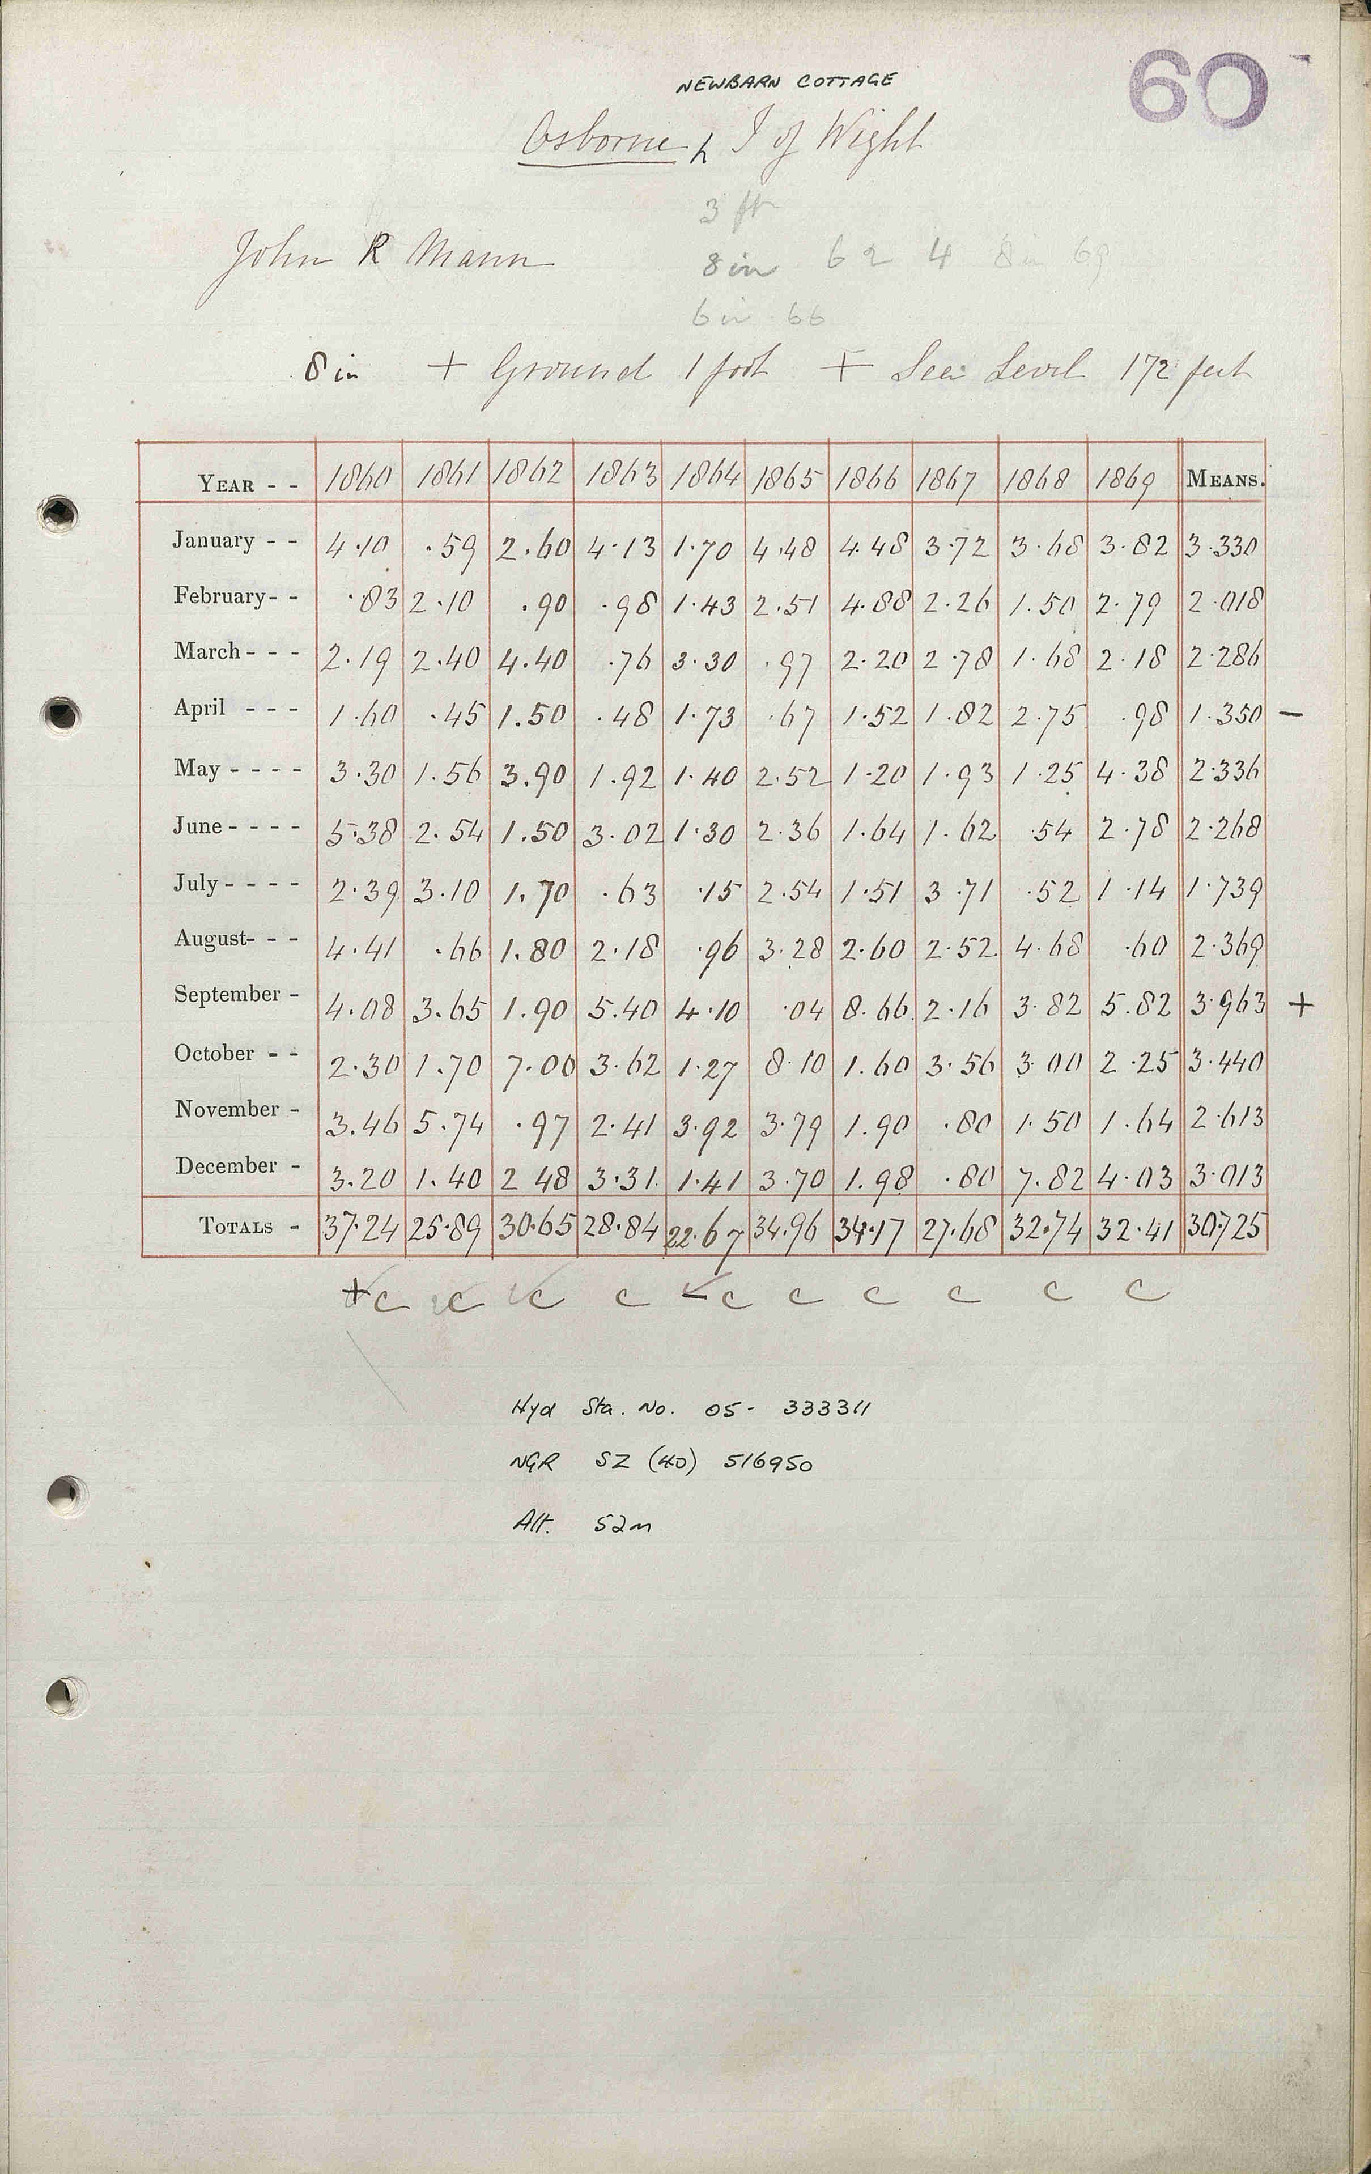 60
NEWBARN COTTAGE
Osborne, I of Wight
3 ft
John R Mann
8 in 62 4 8 in 69
6 in 66
8 in + Ground 1 foot + Sea Level 172 feet
YEAR - - 1860 1861 1862 1863 1864 1865 1866 1867 1868 1869 MEANS.
January - - 4.10 .59 2.60 4.13 1.70 4.48 4.48 3.72 3.68 3.82 3.330
February - - .83 2.10 .90 .98 1.43 2.51 4.88 2.26 1.50 2.79 2.018
March - - - 2.19 2.40 4.40 .76 3.30 .97 2.20 2.78 1.68 2.18 2.286
April - - - 1.60 .45 1.50 .48 1.73 .67 1.52 1.82 2.75 .98 1.350 -
May - - - - 3.30 1.56 3.90 1.92 1.40 2.52 1.20 1.93 1.25 4.38 2.336
June - - - - 5.38 2.54 1.50 3.02 1.30 2.36 1.64 1.62 .54 2.78 2.268
July - - - - 2.39 3.10 1.70 .63 .15 2.54 1.51 3.71 .52 1.14 1.739
August - - - 4.41 .66 1.80 2.18 .96 3.28 2.60 2.52 4.68 .60 2.369
September - 4.08 3.65 1.90 5.40 4.10 .04 8.66 2.16 3.82 5.82 3.963 +
October - - 2.30 1.70 7.00 3.62 1.27 8.10 1.60 3.56 3.00 2.25 3.440
November - 3.46 5.74 .97 2.41 3.92 3.79 1.90 .80 1.50 1.64 2.613
December - 3.20 1.40 2 48 3.31 1.41 3.70 1.98 .80 7.82 4.03 3.013
TOTALS - 37.24 25.89 30.65 28.84 22.67 34.96 34.17 27.68 32.74 32.41 30.725
+ c c c c - c c c c c c
Hyd Sta. No. 05- 333311
NGR SZ (40) 516950
Alt. 52m